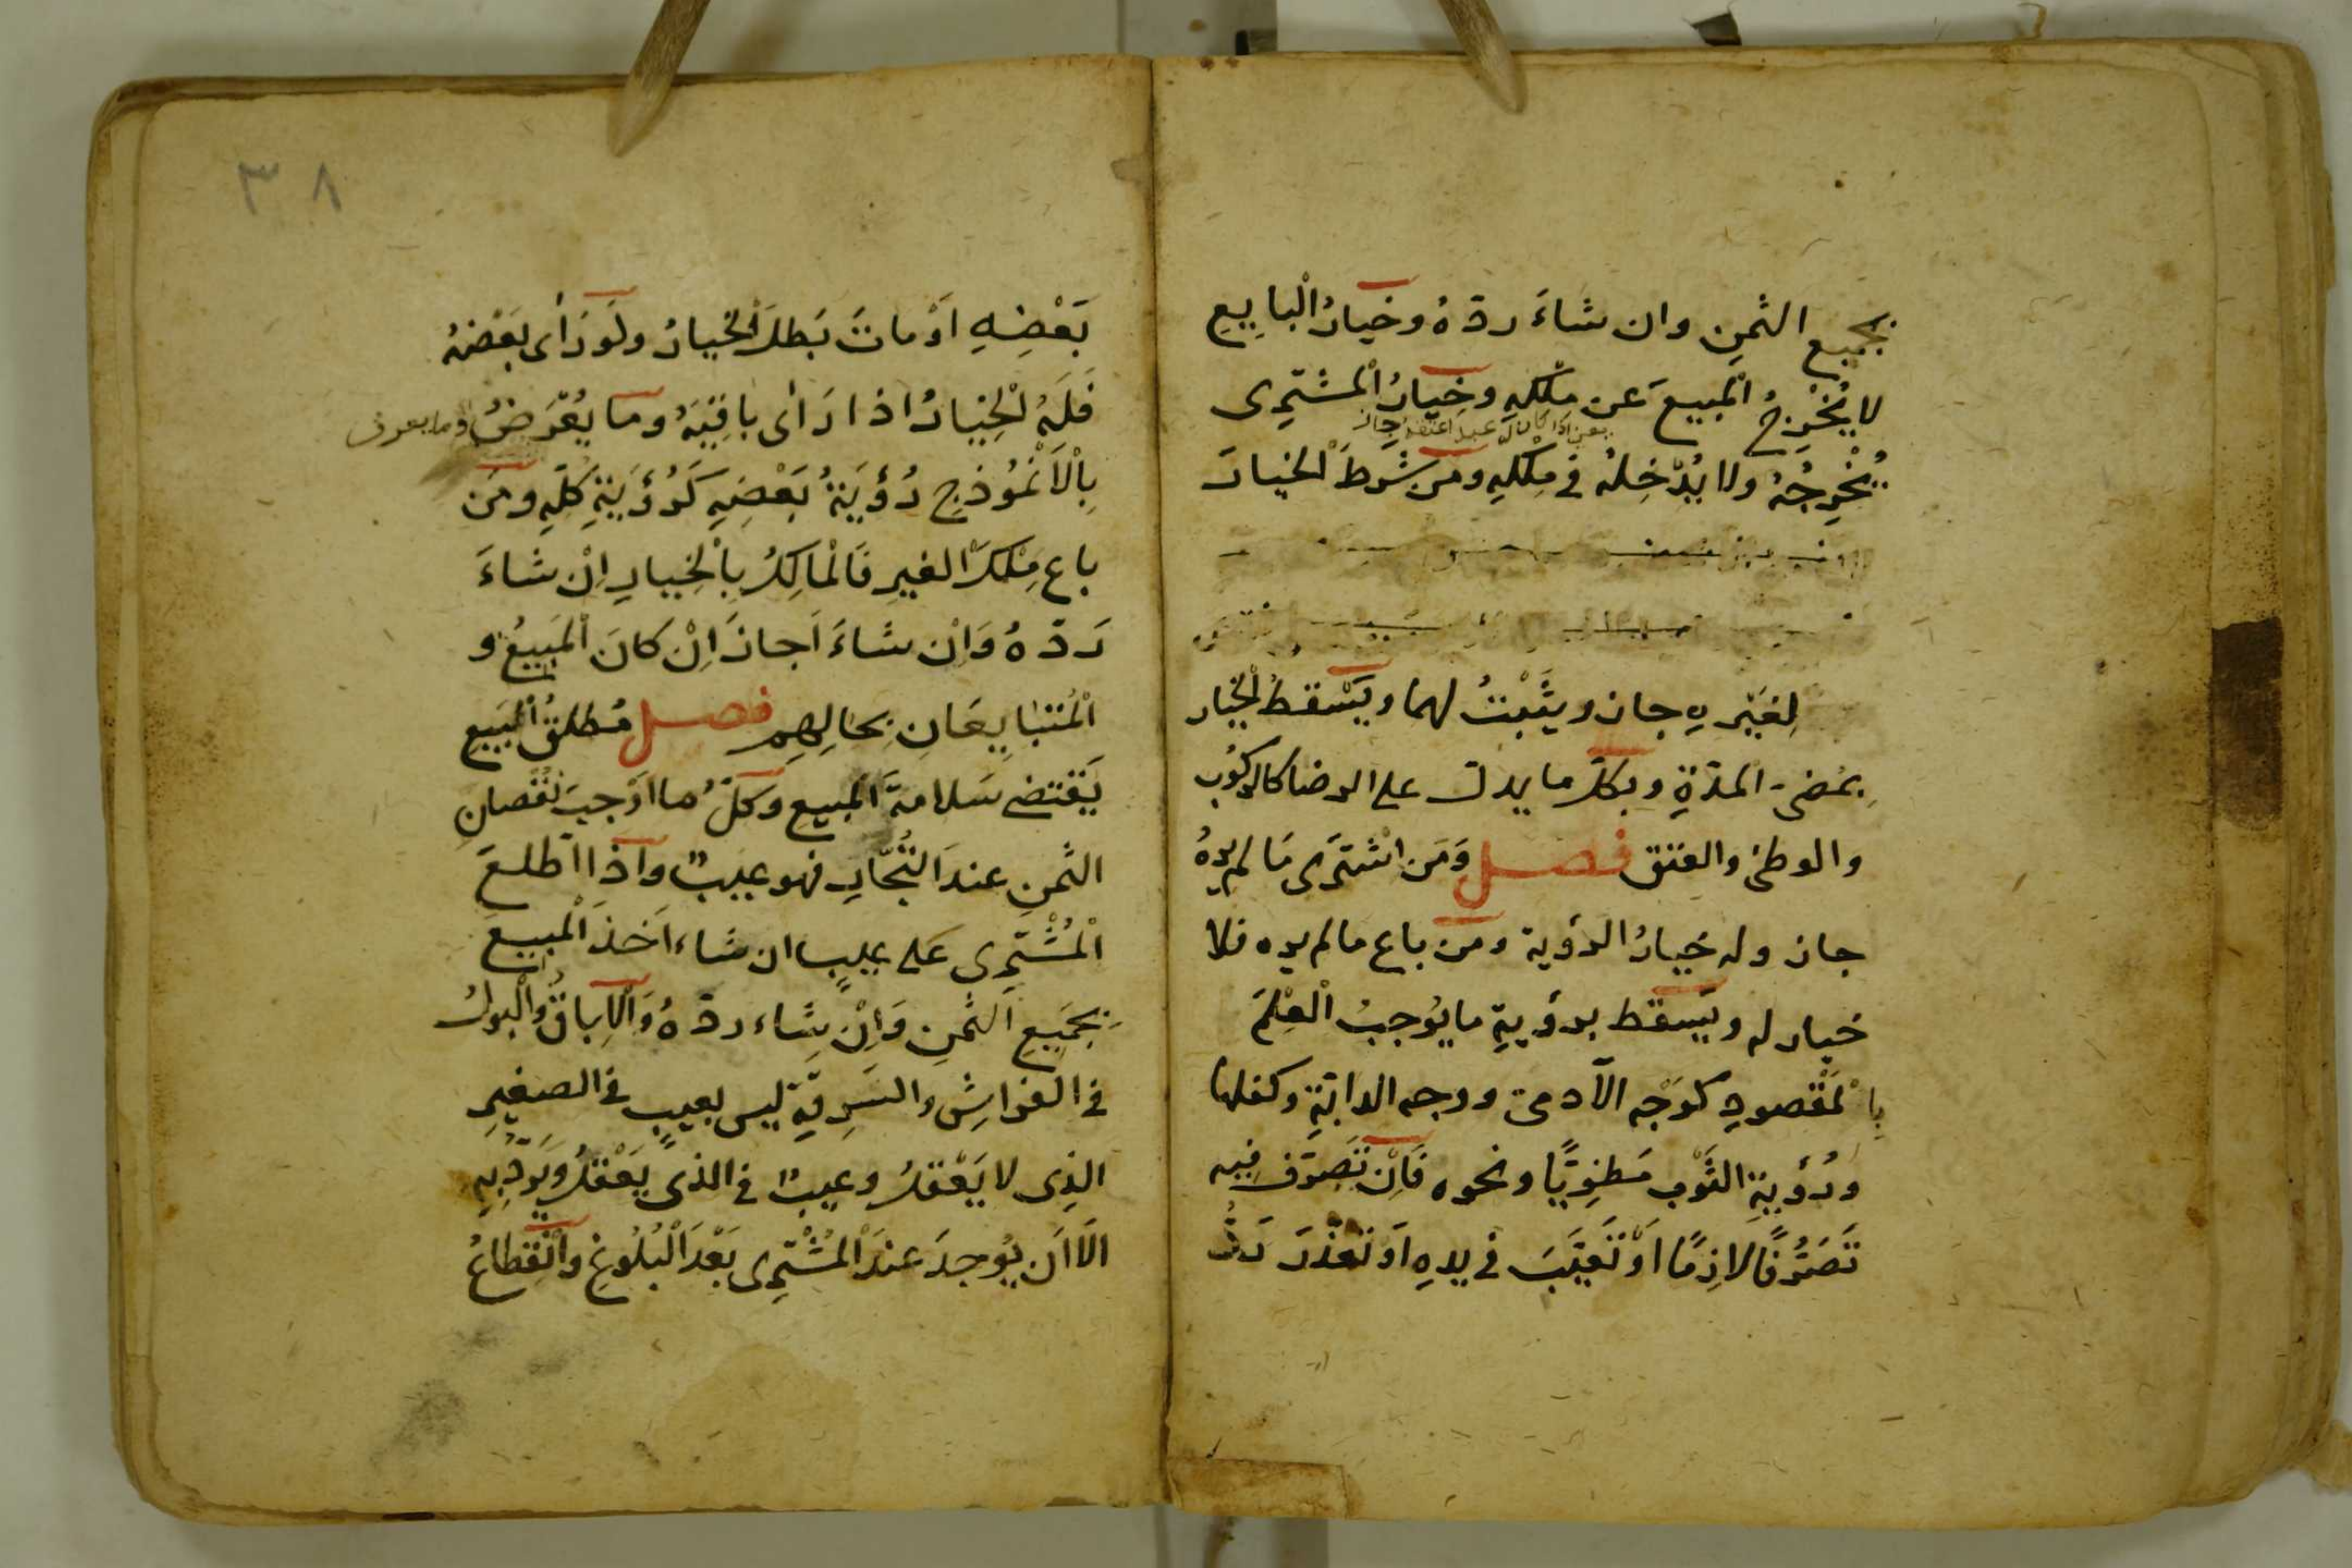 بجميع الثمنِ وان شاءَ ردّهُ وخيارُ الْبايِعِ
لا يُخْرِجُ الْمبيعَ عن مِلْكهِ وخِيارُ الْمشتَرِى
يُخْرِجُهُ ولا يُدْخِلهُ فى مِلْكلهِ ومَن شَرطَ الْخيارَ
لِغَيْرهِ جاز ويثْبتُ لهما ويَسْقطُ الْخيار
بمُضىِ المدّةِ وبكلّ ما يدلّ على الرضا كالركُوبِ
والوطئ والعتق فصل وَمَن اشْتَرَى مَا لم يرهُ
جاز وله خيارُ الرؤية ومن باع ما لم يره فلا
خيار له ويَسقط برؤيةِ ما يُوجبُ الْعِلْمَ
بِالْمَقْصودِ كوَجْه الآدمىّ ووجه الدابّةِ وكفلها
ورُؤيةِ الثَوْبِ مَطْوِيًّا ونحوه فَاِنْ تَصرّف فِيه
تَصَرُّفًا لازِمًا اَوْ تَعَيّبَ فى يدهِ اَو تعذّرَ رَدُّ
٣٨
بَعْضِهِ اَوْ ماتَ بَطلَ الْخيارُ ولَو رَأى بَعْضَهُ
فَلَهُ الْخِيارُ اذا رَأى باقِيَهُ وما يُعْرَضُ وما يعرف
بِالْاَنْمُوذجِ رُؤيَةُ بَعْضِهِ كَرُؤيَةِ كلّهِ ومَن
باع مِلْكَ الغيرِ فَالْمالِكُ بِالْخِيارِ اِنْ شاءَ
رَدّهُ وَاِنْ شاءَ اَجازَ اِنْ كانَ الْمَبِيعُ و
الْمُتَبايِعَانِ بحالِهِم فصل مُطلقُ الْبَيع
يَقْتضى سَلامةَ الْمَبيعِ وَكلُّ ما اوْجبَ نُقْصانَ
الثمنِ عندَ التُجّارِ فهو عيبٌ وَاذا اطّلعَ
الْمُشْتَرِى عَلى عيبٍ ان شاء اَخَذ الْمبيعَ
بجَمِيعِ الثمنِ وَاِنْ شاء ردّهُ وَالْاِباقُ والْبولُ
فى الفراشِ والسَرِقةِ ليس بعيبٍ فى الصغيرِ
الذِى لا يَعْقلُ وعيبٌ فى الذى يَعْقلُ ويَردّ بِهِ
الّا اَن يُوجدَ عندَ الْمُشْتَرِى بَعْدَ الْبُلُوغِ وانْقِطاعُ